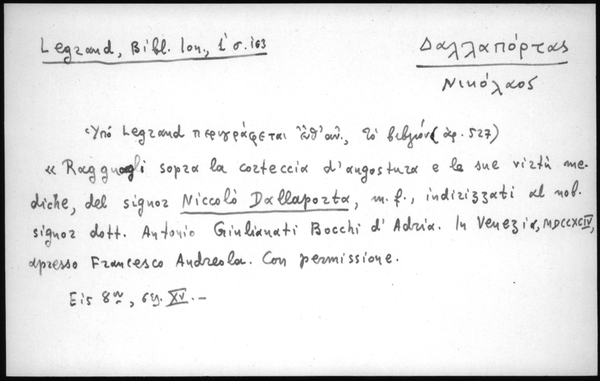 Legrand, Bibl. Ion., 1 σ. 163
Δαλλαπόρτας
Νικόλαος
Ὑπό Legrand περιγράφεται ἐνθ' ἀν., τό βιβλίον (ἀρ. 527)
« Ragguagli sopra la corteccia d'angostura e le sue virtù me-
diche, del signor Niccolò Dallaporta, m. f., indirizzati al nob.
signor dott. Antonio Giulianati Bocchi d'Adria. In Venezia, MDCCXCIV,
apresso Francesco Andreola. Con permissione.
Εἰς 8ον, σελ. XV. –